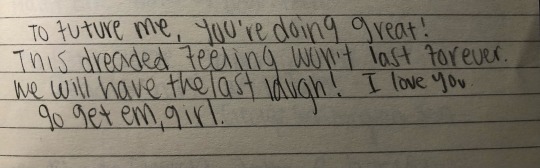 To future me, you're doing great!
This dreaded feeling won't last forever.
We will have the last laugh! I love you.
go get em, girl.